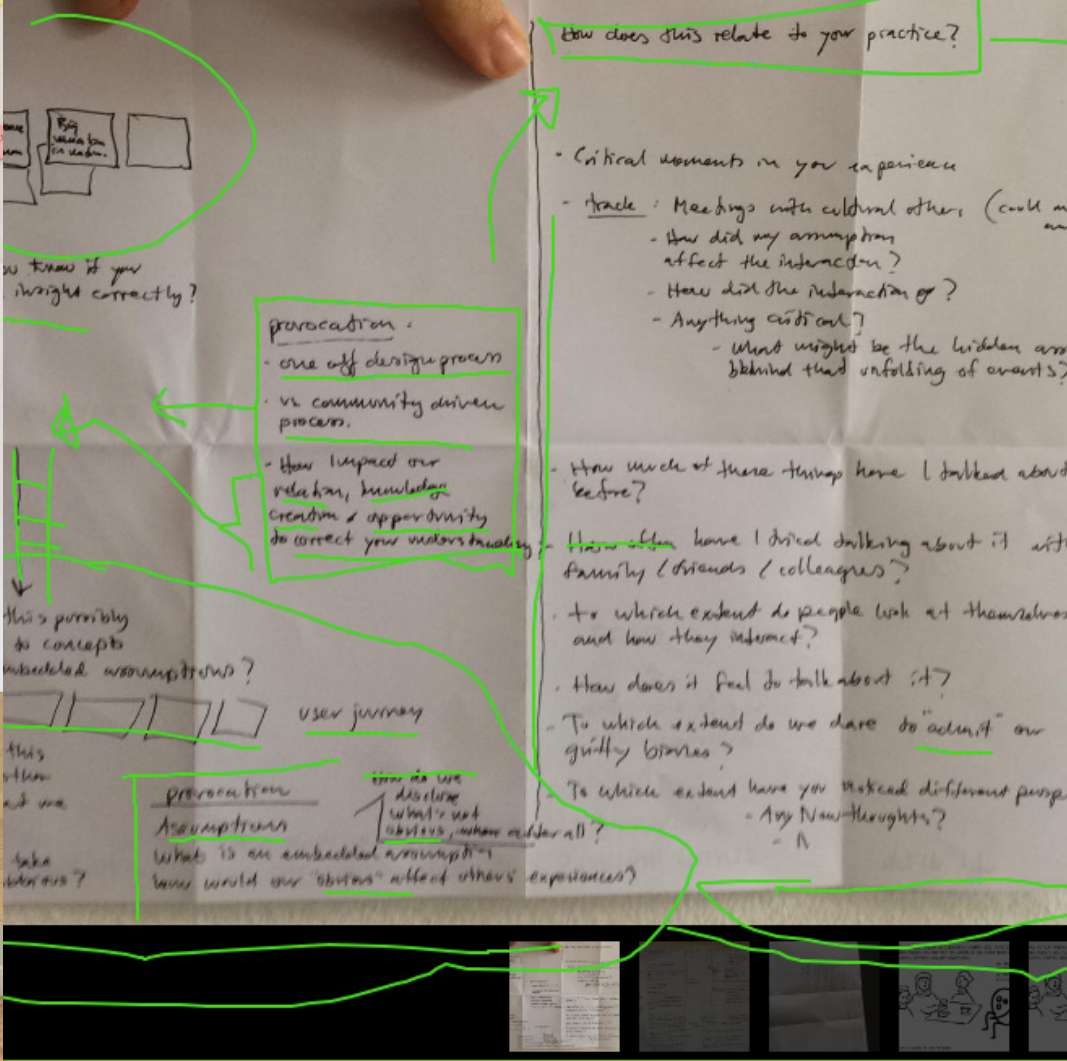 How does this relate to your practice?
Big
in
know if your
insight correctly?
provocation.
- one off design process
- vs community driven
process.
- How impact our
relation, knowledge
creation & opportunity
to correct your understanding
this possibly
to concepts
embedded assumptions?
user journey
this
provocation
Assumptions
How do we
disclose
what's not
obvious, when all?
What is an embedded assumption
how would our "obvious" affect others' experiences?
take
- Critical moments in you experience
- track: Meetings with cultural other, (could
- How did my assumption
affect the interaction?
- How did the interaction go?
- Anything critical?
- What might be the hidden
behind that unfolding of events?
- How much of these things have I talked about
before?
- How often have I tried talking about it with
family / friends / colleagues?
- to which extent do people look at themselves
and how they interact?
- How does it feel to talk about it?
- To which extent do we dare to "admit" our
guilty biases?
- To which extent have you noticed different
- Any New thoughts?